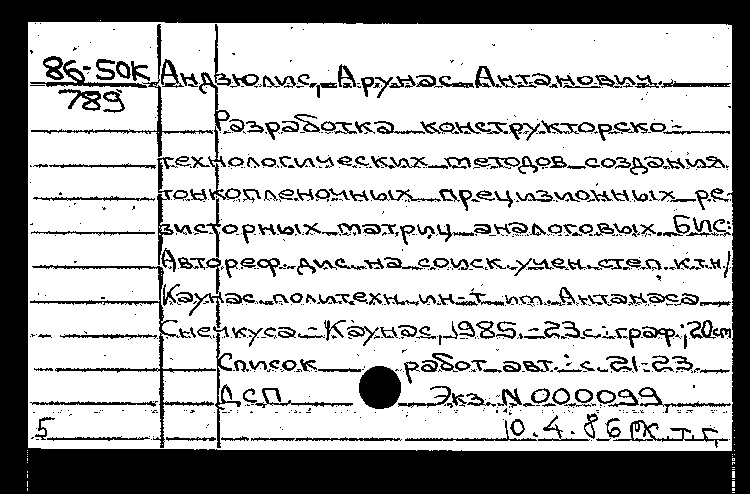 86-50К Андзюлис, Арунас Антанович.
789
Разработка конструкторско-
технологических методов создания
тонкопленочных прецизионных ре-
зисторных матриц аналоговых БИС:
Автореф. дис. на соиск. учен. степ. к.т.н/
Каунас. политехн. ин-т им. Антанаса
Снечкуса. - Каунас, 1985. - 23 с.: граф; 20 cm
Список работ авт.: с. 21-23
ДСП Экз. N 000099
5 10.4.86 т.г.